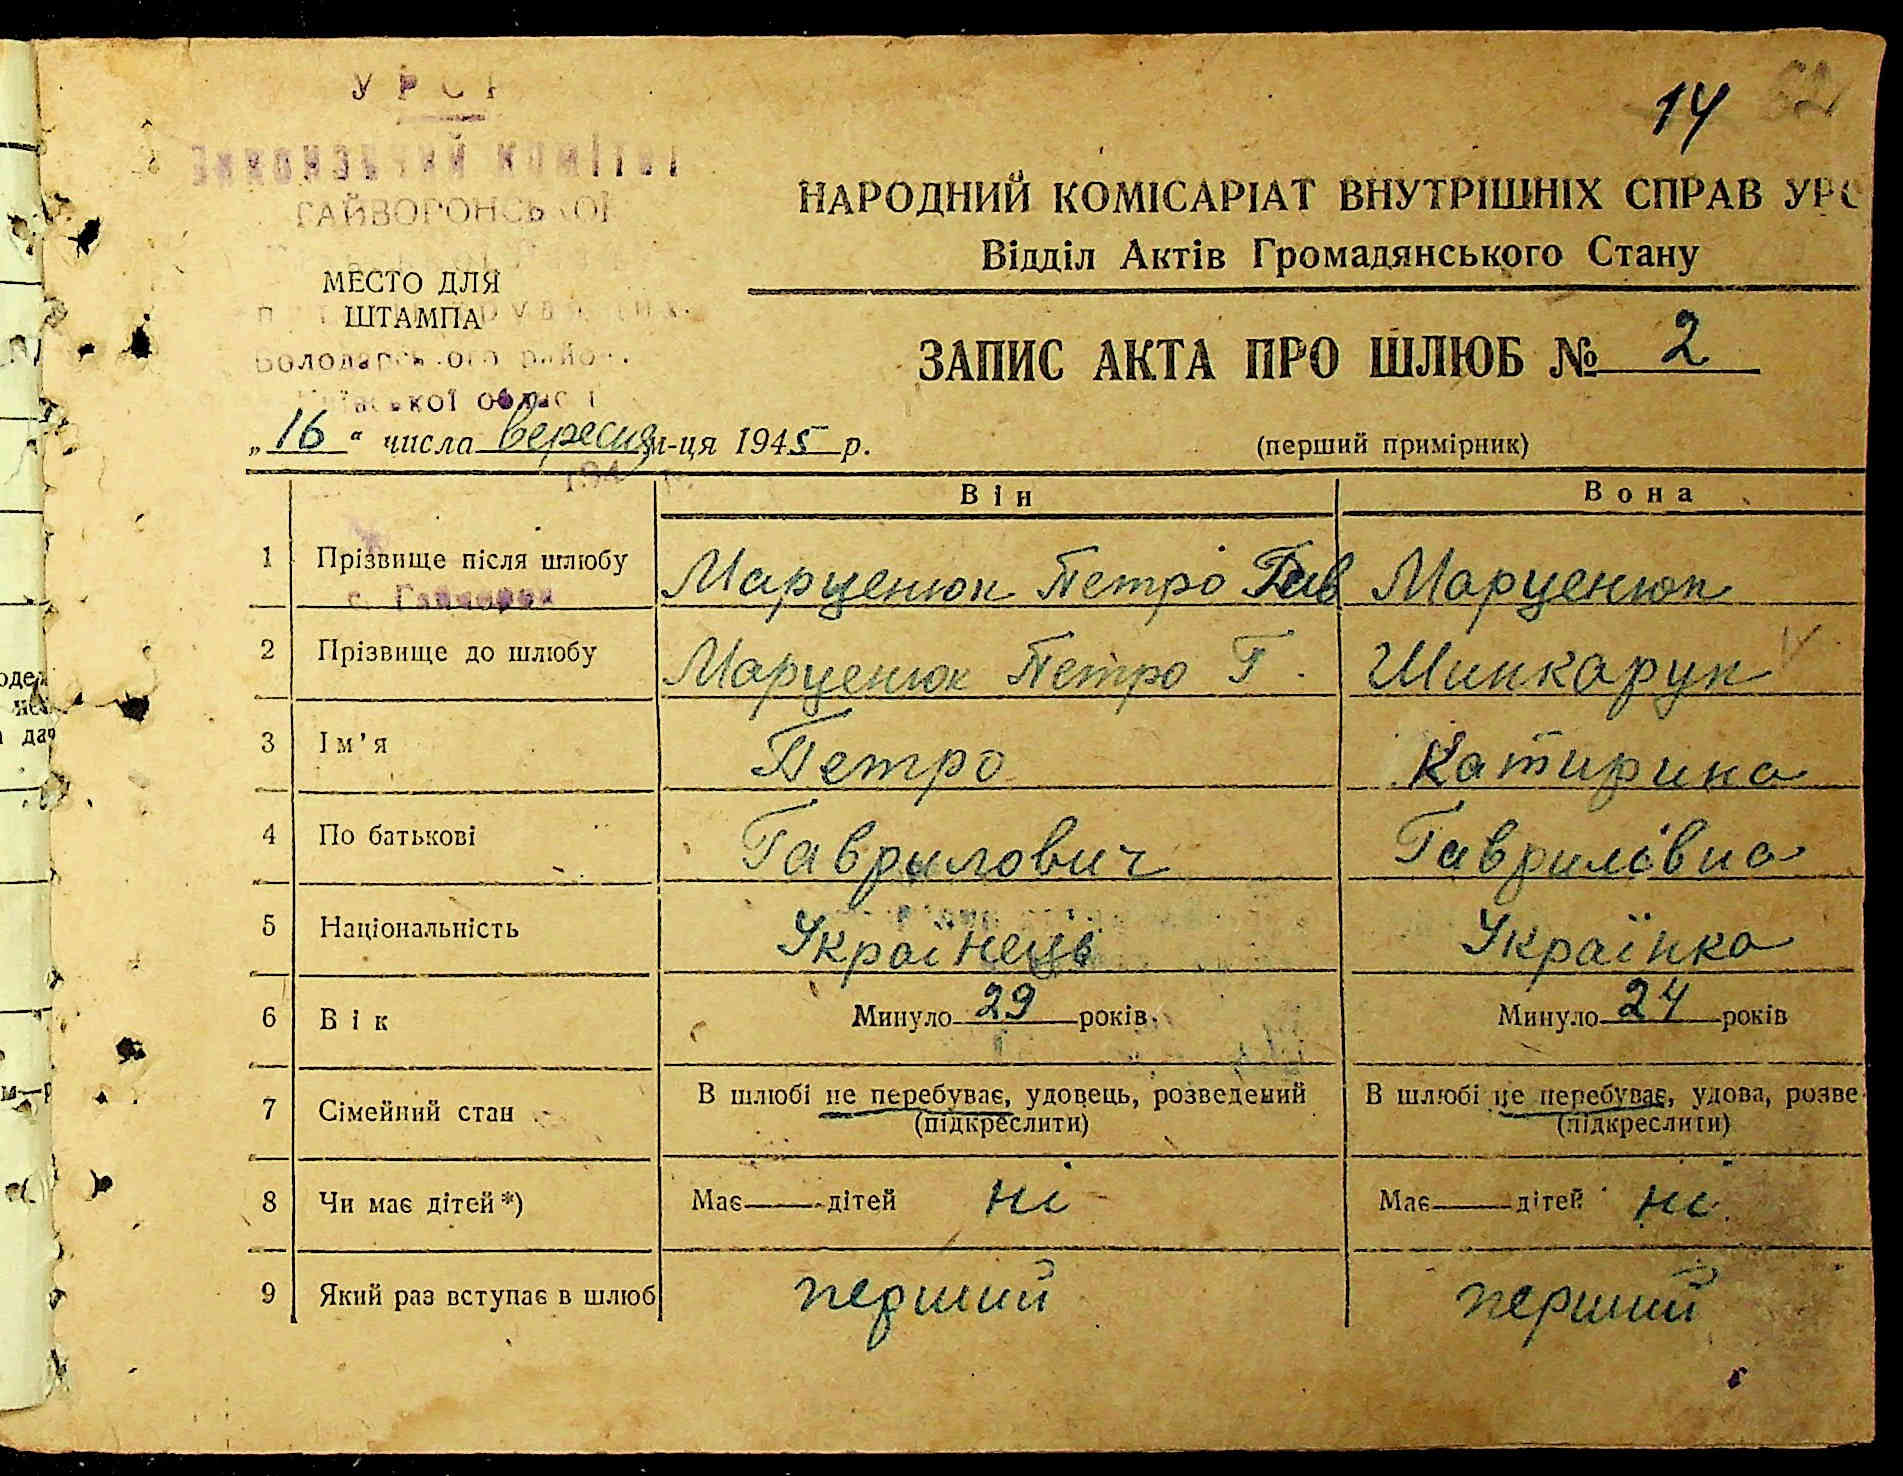 14
УРСР
ГАЙВОРОНСЬКОЇ
НАРОДНИЙ КОМІСАРІАТ ВНУТРІШНІХ СПРАВ УРС
Відділ Актів Громадянського Стану
МЕСТО ДЛЯ
ШТАМПА
Володарського район
Київської області
ЗАПИС АКТА ПРО ШЛЮБ № 2
„16“ числа вересня м-ця 1945 р.
(перший примірник)
Він Вона
1 Прізвище після шлюбу Марценюк Петро Гав Марценюк
2 Прізвище до шлюбу Марценюк Петро Г. Шинкарук
3 Ім'я Петро Катирина
4 По батькові Гаврилович Гаврилівна
5 Національність Українець Українка
6 Вік Минуло 29 років Минуло 24 років
7 Сімейний стан В шлюбі не перебуває, удовець, розведений В шлюбі не перебуває, удова, розве
(підкреслити) (підкреслити)
8 Чи має дітей*) Має дітей ні Має дітей ні
9 Який раз вступає в шлюб перший перший